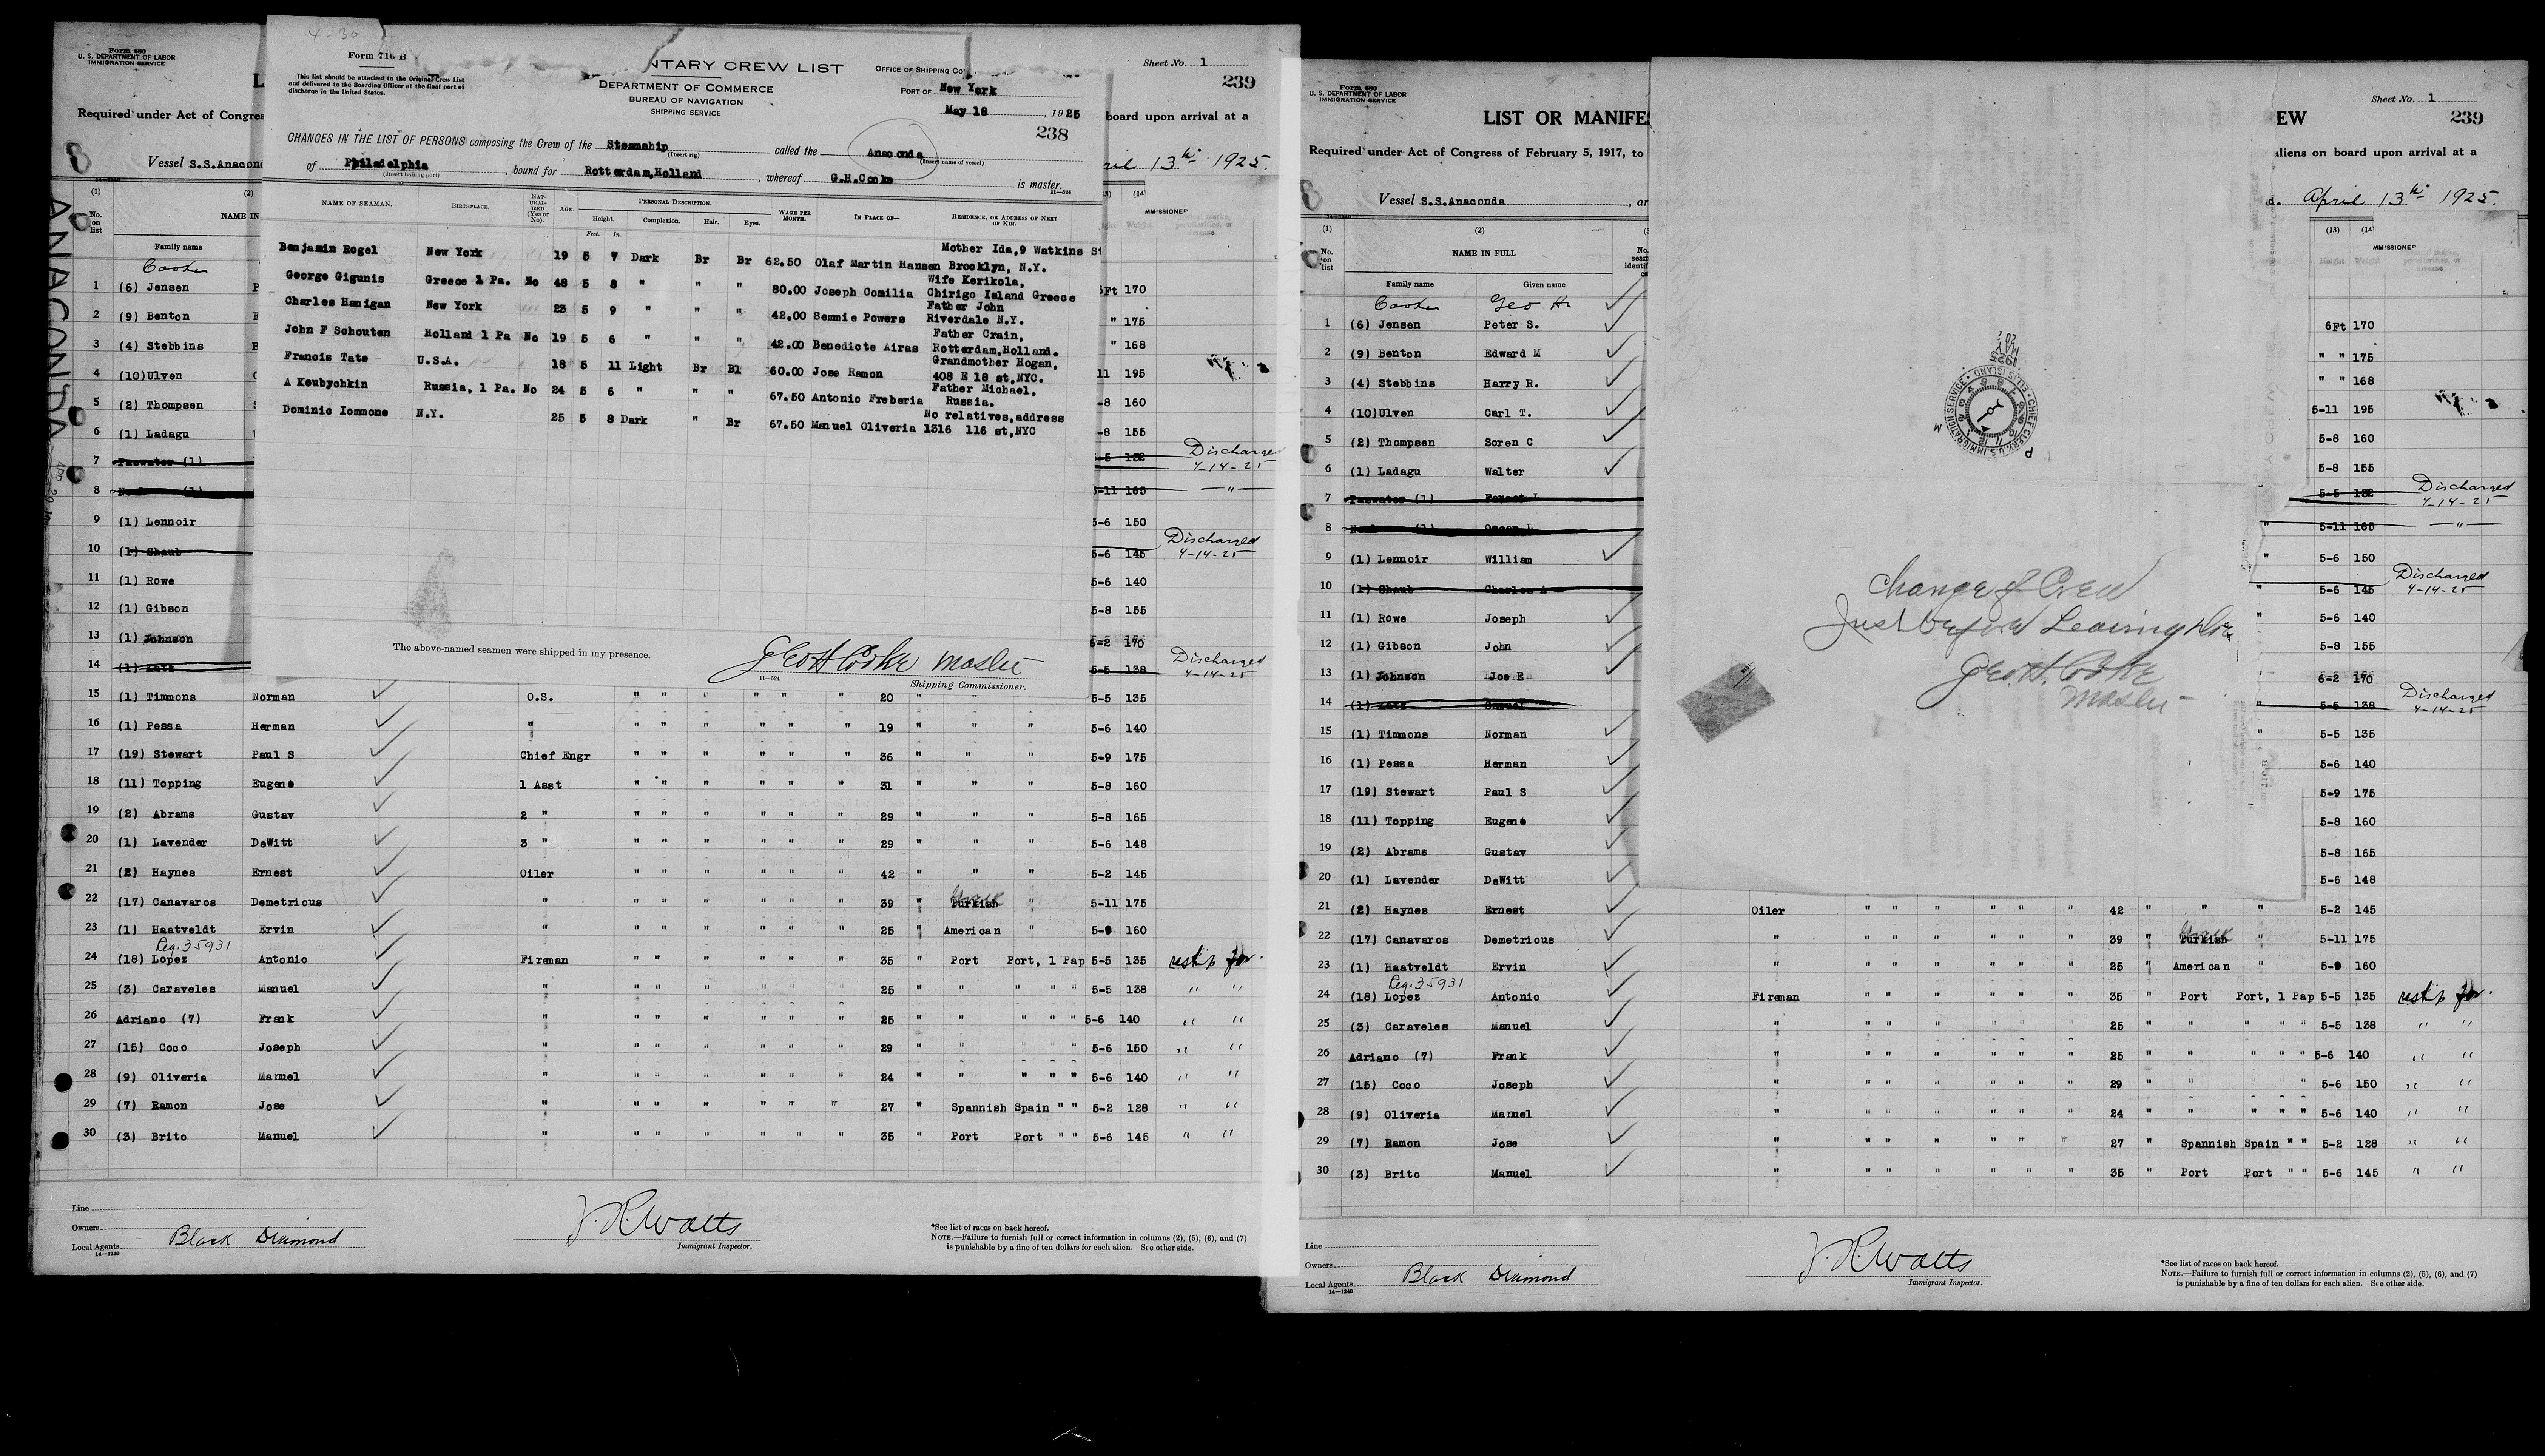 Form 680
U. S. DEPARTMENT OF LABOR
IMMIGRATION SERVICE
Sheet No. 1
239
Required under Act of Congres
board upon arrival at a
Vessel S.S.Anacond
ril 13th 1925.
ANACONDA
4-30
Form 716 B
This list should be attached to the Original Crew List
and delivered to the Boarding Officer at the final port of
discharge in the United States.
NTARY CREW LIST
DEPARTMENT OF COMMERCE
BUREAU OF NAVIGATION
SHIPPING SERVICE
OFFICE OF SHIPPING CO
PORT OF New York
May 18, 1925
238
CHANGES IN THE LIST OF PERSONS composing the Crew of the Steamship called the Anaconda
(Insert rig) (Insert name of vessel)
of Philadelphia, bound for Rotterdam,Holland, whereof G.H.Cooke is master.
(Insert hailing port) 11—524
NAME OF SEAMAN. BIRTHPLACE. NAT-URAL-IZED (Yes or No). AGE. PERSONAL DESCRIPTION. Height. Feet. In. Complexion. Hair. Eyes. WAGE PER MONTH. IN PLACE OF— RESIDENCE, OR ADDRESS OF NEXT OF KIN.
Benjamin Rogel New York 19 5 7 Dark Br Br 62.50 Olaf Martin Hansen Mother Ida,9 Watkins St Brooklyn, N.Y.
George Gigunis Greece 1 Pa. No 48 5 8 " " " 80.00 Joseph Comilia Wife Kerikola, Chirigo Island Greece
Charles Hanigan New York 23 5 9 " " " 42.00 Semmie Powers Father John Riverdale N.Y.
John F Schouten Holland 1 Pa No 19 5 6 " " " 42.00 Benedicte Airas Father Crain, Rotterdam,Holland.
Francis Tate U.S.A. 18 5 11 Light Br Bl 60.00 Jose Ramon Grandmother Hogan, 408 E 18 st,NYC.
A Koubychkin Russia, 1 Pa. No 24 5 6 " " " 67.50 Antonio Freberia Father Michael, Russia.
Dominic Iommone N.Y. 25 5 8 Dark " Br 67.50 Manuel Oliveria No relatives,address 1316 116 st,NYC
The above-named seamen were shipped in my presence.
Geo H Cooke Master
11—524
Shipping Commissioner.
(1) (2)
No. on list NAME IN
Family name
Cooke
1 (6) Jensen 6Ft 170
2 (9) Benton " 175
3 (4) Stebbins " 168
4 (10)Ulven 11 195
5 (2) Thompsen -8 160
6 (1) Ladagu -8 155
7 Paswater (1) 5-5 132 Discharged 4-14-25
8 5-11 165 — " —
9 (1) Lennoir 5-6 150
10 (1) Shaub 5-6 145 Discharged 4-14-25
11 (1) Rowe 5-6 140
12 (1) Gibson 5-8 155
13 (1) Johnson 6-2 170
14 (1) Katz 5-5 138 Discharged 4-14-25
15 (1) Timmons Norman O.S. " " " " " " 20 " " " 5-5 135
16 (1) Pessa Herman " " " " " " " 19 " " " 5-6 140
17 (19) Stewart Paul S Chief Engr " " " " " " 36 " " " 5-9 175
18 (11) Topping Eugene 1 Asst " " " " " " 31 " " " 5-8 160
19 (2) Abrams Gustav 2 " " " " " " " 29 " " " 5-8 165
20 (1) Lavender DeWitt 3 " " " " " " " 29 " " " 5-6 148
21 (2) Haynes Ernest Oiler " " " " " " 42 " " " 5-2 145
22 (17) Canavaros Demetrious " " " " " " " 39 " Turkish " 5-11 175
23 (1) Haatveldt Ervin " " " " " " " 25 " American " 5- 160
Reg.35931
24 (18) Lopez Antonio Fireman " " " " " " 35 " Port Port, 1 Pap 5-5 135
25 (3) Caraveles Manuel " " " " " " " 25 " " " " " 5-5 138 " "
26 Adriano (7) Frank " " " " " " " 25 " " " " " 5-6 140 " "
27 (15) Coco Joseph " " " " " " " 29 " " " " " 5-6 150 " "
28 (9) Oliveria Manuel " " " " " " " 24 " " " " " 5-6 140 " "
29 (7) Ramon Jose " " " " " " " 27 " Spannish Spain " " 5-2 128 " "
30 (3) Brito Manuel " " " " " " " 35 " Port Port " " 5-6 145 " "
Line
Owners
Local Agents Black Diamond
14—1240
J. R. Watts
Immigrant Inspector.
*See list of races on back hereof.
NOTE.—Failure to furnish full or correct information in columns (2), (5), (6), and (7)
is punishable by a fine of ten dollars for each alien. See other side.
Form 680
U. S. DEPARTMENT OF LABOR
IMMIGRATION SERVICE
LIST OR MANIFES
EW
Sheet No. 1
239
Required under Act of Congress of February 5, 1917, to
aliens on board upon arrival at a
Vessel S.S.Anaconda, ar
d. April 13th 1925.
(1) (2) (13) (14
No. on list NAME IN FULL
Family name Given name Height Weight
Cooke Geo H.
1 (6) Jensen Peter S. 6Ft 170
2 (9) Benton Edward M " " 175
3 (4) Stebbins Harry R. " " 168
4 (10)Ulven Carl T. 5-11 195
5 (2) Thompsen Soren C 5-8 160
6 (1) Ladagu Walter 5-8 155
7 Paswater (1) Forest L 5-5 132 Discharged 4-14-25
8 Oscar L 5-11 165 — " —
9 (1) Lennoir William " 5-6 150
10 (1) Shaub Charles A 5-6 145 Discharged 4-14-25
11 (1) Rowe Joseph " 5-6 140
12 (1) Gibson John 5-8 155
13 (1) Johnson Joe E 6-2 170
14 (1) Katz Samuel 5-5 138 Discharged 4-14-25
15 (1) Timmons Norman " 5-5 135
16 (1) Pessa Herman 5-6 140
17 (19) Stewart Paul S 5-9 175
18 (11) Topping Eugene 5-8 160
19 (2) Abrams Gustav 5-8 165
20 (1) Lavender DeWitt 5-6 148
21 (2) Haynes Ernest Oiler " " " " " " 42 " " " 5-2 145
22 (17) Canavaros Demetrious " " " " " " " 39 " Turkish " 5-11 175
23 (1) Haatveldt Ervin " " " " " " " 25 " American " 5- 160
Reg.35931
24 (18) Lopez Antonio Fireman " " " " " " 35 " Port Port, 1 Pap 5-5 135
25 (3) Caraveles Manuel " " " " " " " 25 " " " " " 5-5 138 " "
26 Adriano (7) Frank " " " " " " " 25 " " " " " 5-6 140 " "
27 (15) Coco Joseph " " " " " " " 29 " " " 5-6 150 " "
28 (9) Oliveria Manuel " " " " " " " 24 " " " " " 5-6 140 " "
29 (7) Ramon Jose " " " " " " " 27 " Spannish Spain " " 5-2 128 " "
30 (3) Brito Manuel " " " " " " " 35 " Port Port " " 5-6 145 " "
1925
MAY 20
CHIEF CLERK, U.S. IMMIGRATION SERVICE • ELLIS ISLAND
Change of Crew
Just before Leaving
Geo. H. Cooke
Master
Line
Owners
Local Agents Black Diamond
14—1240
J. R. Watts
Immigrant Inspector.
*See list of races on back hereof.
NOTE.—Failure to furnish full or correct information in columns (2), (5), (6), and (7)
is punishable by a fine of ten dollars for each alien. See other side.